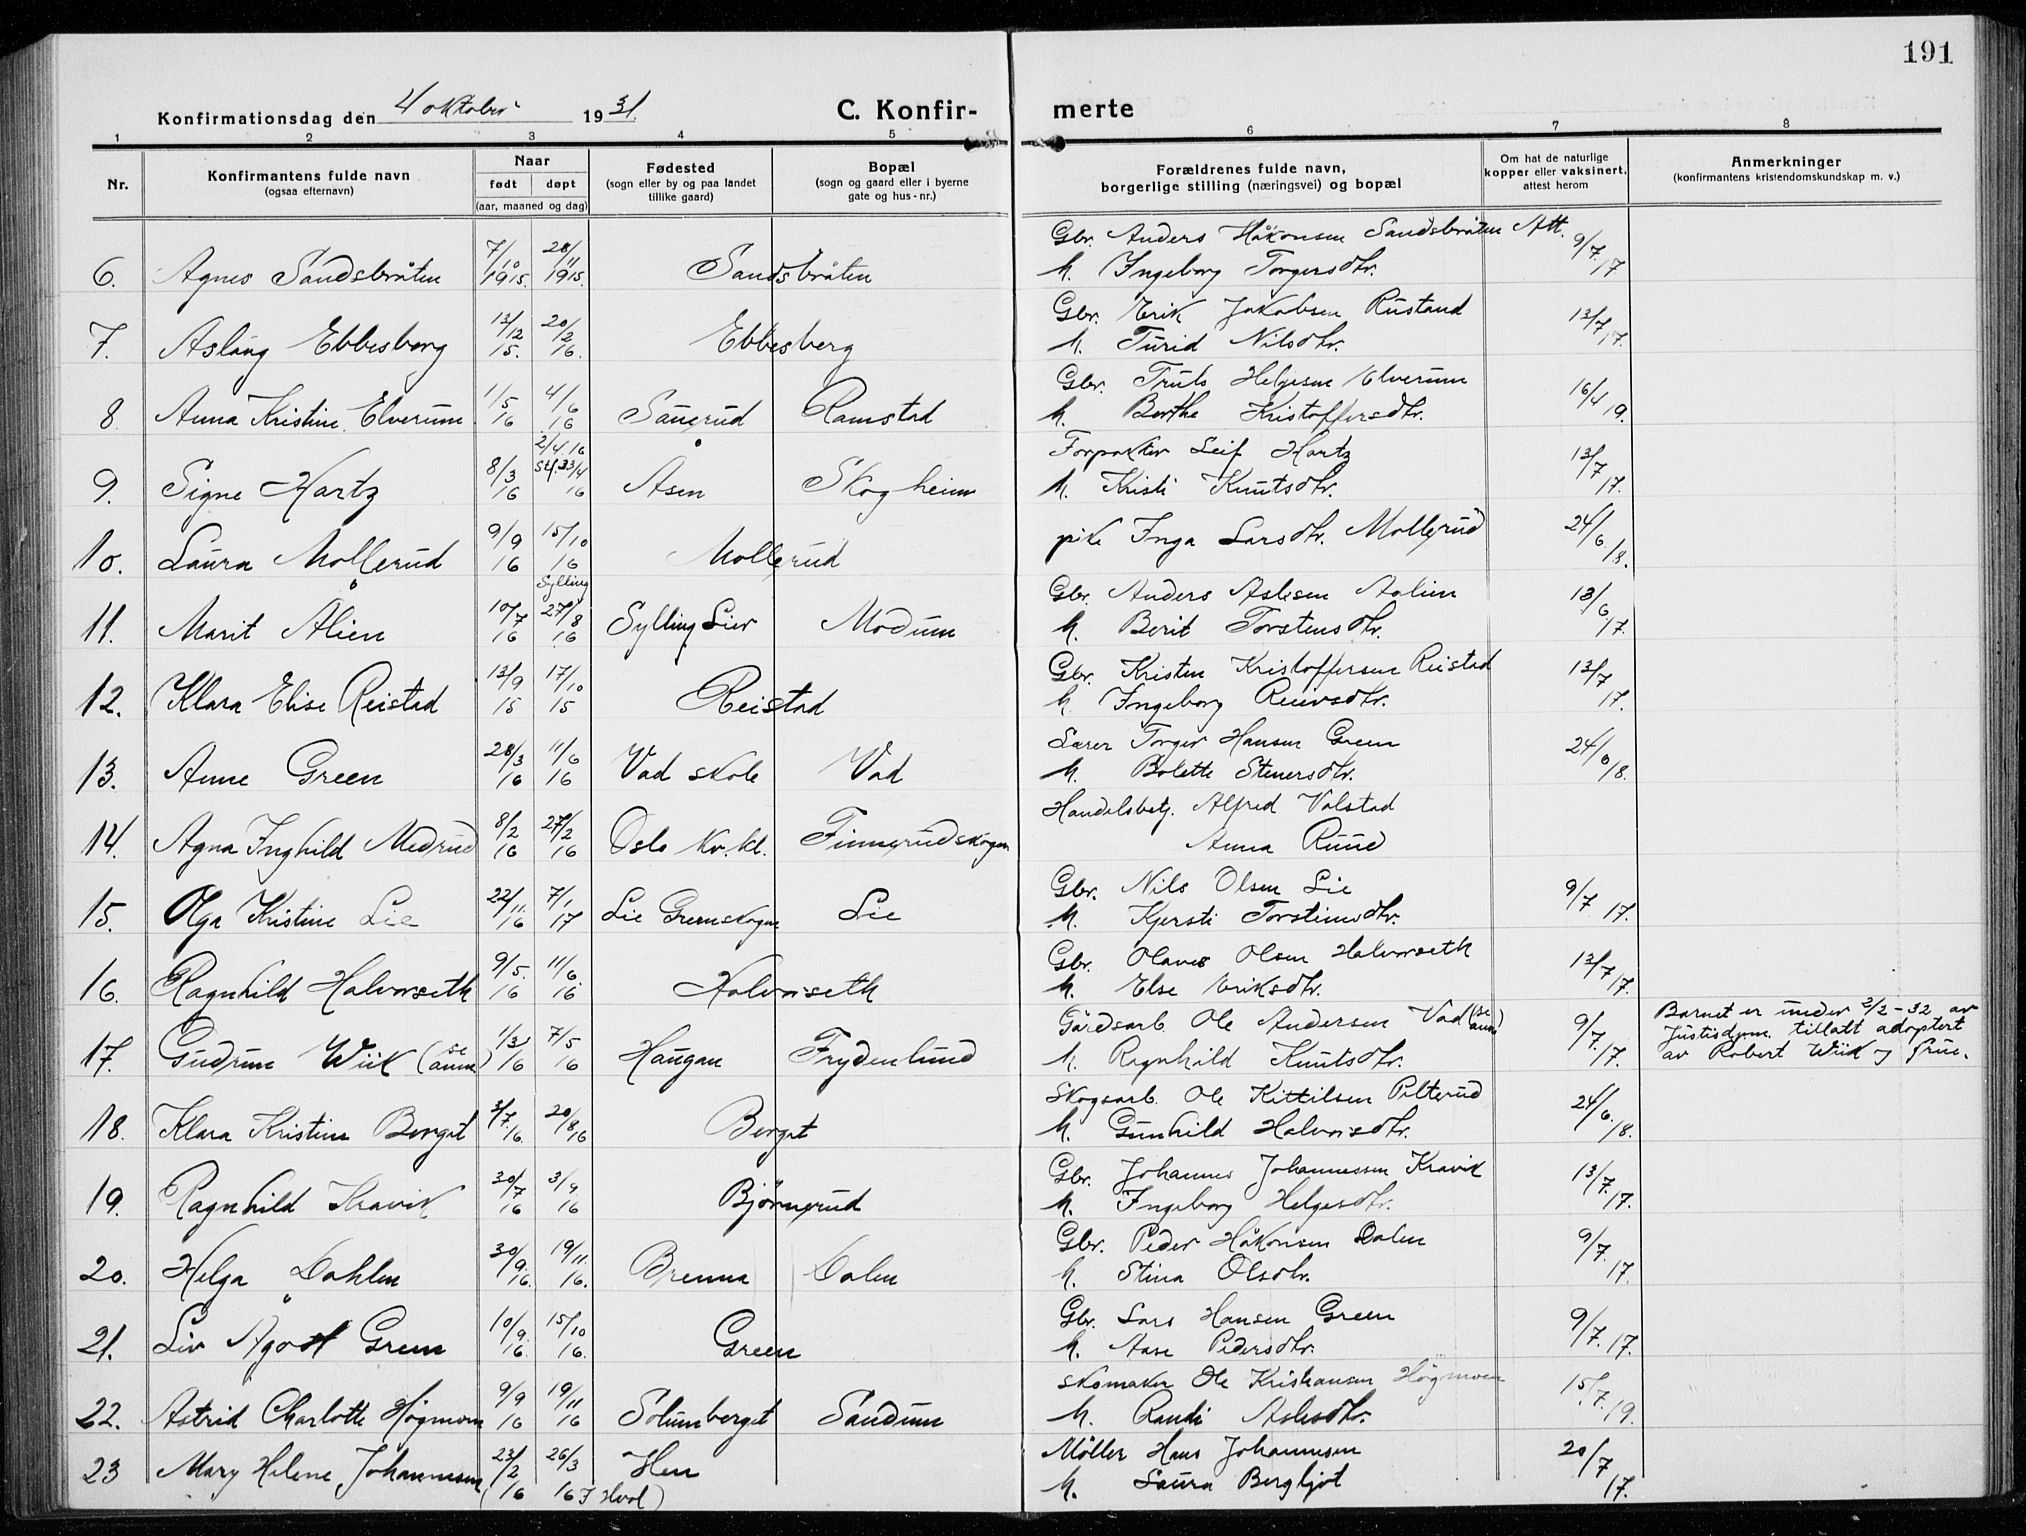 191
Konfirmationsdag den 4 oktober 1931.
C. Konfirmerte
1 2 3 4 5 6 7 8
Nr.
Konfirmantens fulde navn
(ogsaa efternavn)
Naar
født døpt
(aar, maaned og dag)
Fødested
(sogn eller by og paa landet
tillike gaard)
Bopæl
(sogn og gaard eller i byerne
gate og hus-nr.)
Forældrenes fulde navn,
borgerlige stilling (næringsvei) og bopæl
Om hat de naturlige
kopper eller vaksinert,
attest herom
Anmerkninger
(konfirmantens kristendomskundskap m. v.)
6. Agnes Sandsbråten 7/10 1915. 28/11 1915. Sandsbråten Gbr. Anders Håkonsen Sandsbråten Att. 9/7 17
h. Ingeborg Torgersdtr.
7. Aslaug Ebbesberg 13/12 15. 20/2 16. Ebbesberg Gbr. Erik Jakobsen Rustand 13/7 17.
h. Turid Nilsdtr.
8. Anna Kristine Elverum 1/5 16 4/6 16 Saugrud Ramstad Gbr. Truls Helgesen Elverum 16/4 19.
h. Berthe Kristoffersdtr.
9. Signe Hartz 8/3 16 2/4 16 Stf. 23/4 16 Åsen Skogheim Forpakter Leif Hartz 13/7 17.
h. Kristi Knutsdtr.
10. Laura Mollerud 9/9 16 15/10 16 Mollerud pike Inga Larsdtr. Mollerud 24/6 18.
11. Marit Ålien 10/7 16 Sylling 27/8 16 Sylling Lier Modum Gbr. Anders Aslesen Aalien 13/6 17.
h. Berit Torstensdtr.
12. Klara Elise Reistad 13/9 15 17/10 15 Reistad Gbr. Kristen Kristoffersen Reistad 13/7 17.
h. Ingeborg Reiersdtr.
13. Anne Green 28/3 16 11/6 16 Vad skole Vad Lærer Torger Hansen Green 24/6 18.
h. Bolette Stenersdtr.
14. Agna Inghild Medrud 8/2 16 27/2 16 Oslo kv. kl. Finnerudskogen Handelsbetj. Alfred Valstad
Anna Ruud
15. Olga Kristine Lie 22/11. 16 7/1 17 Lie Greenskogen Lie Gbr. Nils Olsen Lie 9/7 17.
h. Kjersti Torstensdtr.
16. Ragnhild Halvorseth 9/5. 16 11/6 16 Halvorseth Gbr. Olaves Olsen Halvorseth 13/7 17.
h. Else Eriksdtr.
17. Gudrun Wiik (se anm) 1/3 16 7/5 16 Haugan Frydenlund Gårdsarb. Ole Andersen Vad (se anm) 9/7. 17. Barnet er under 2/2-32 av
h. Ragnhild Knutsdtr. Justisdpm. tillatt adoptert
av Robert Wiik og frue.
18. Klara Kristine Berget 3/7. 16 20/8 16 Berget Skogsarb. Ole Kittilsen Pilterud 24/6. 18.
h. Gunhild Halvorsdtr.
19. Ragnhild Kravik 30/7 16 3/9 16 Bjørnerud Gbr. Johannes Johannessen Kravik 13/7. 17.
h. Ingeborg Helgesdtr.
20. Helga Dahlen 30/9. 16. 19/11. 16. Brenna Dalen Gbr. Peder Håkonsen Dalen 9/7 17.
h. Stina Olsdtr.
21. Liv Ågot Green 10/9. 16. 15/10 16. Green Gbr. Lars Hansen Green 9/7. 17.
h. Aase Pedersdtr.
22. Astrid Charlotte Högmoen 9/9 16 19/11 16 Solumberget Sandum Skomaker Ole Kristiansen Högmoen 15/7. 19.
h. Randi Aslesdtr.
23 Mary Helene Johannesen 23/2 16 26/3 16 Hen Møller Hans Johannesen 20/7 17.
( i Hval) h. Laura Bergljot